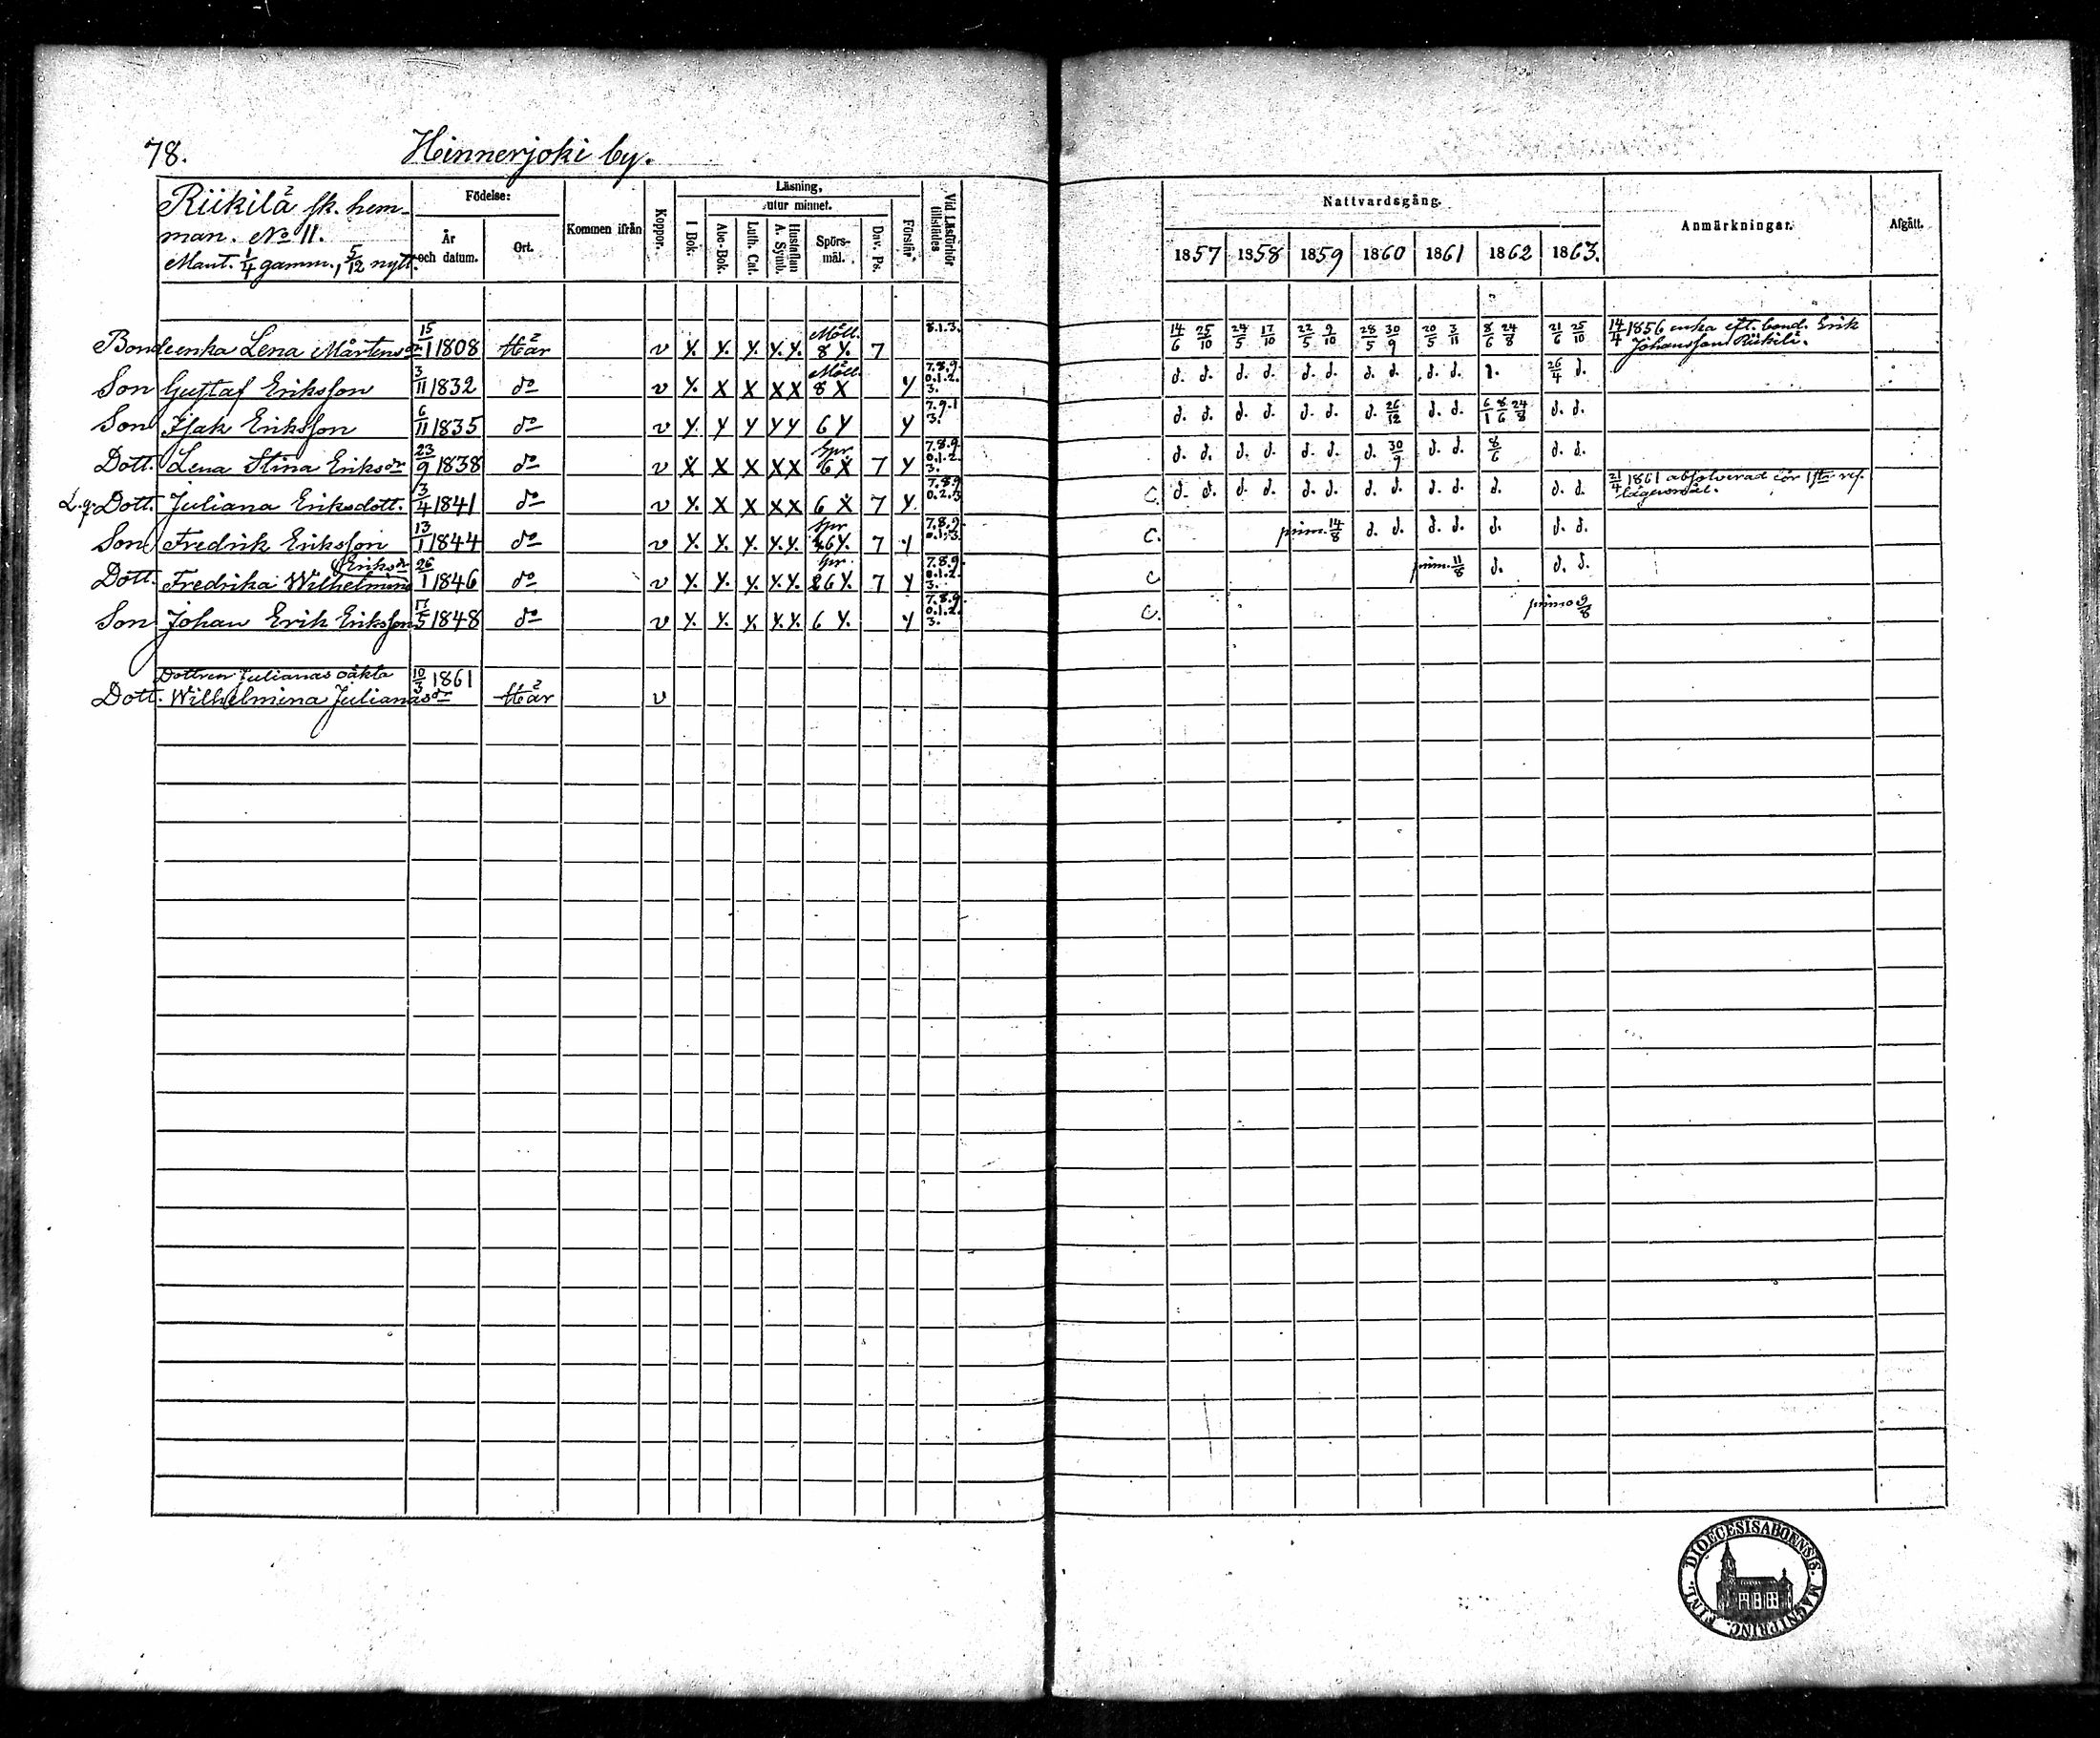 78. Hinnerjoki by.
Riikilä sk. hem-
man. No 11.
Mant. 1/4 gamm., 5/12 nytt.
Födelse:
År och datum.
Ort.
Kommen ifrån
Koppor.
Läsning,
utur minnet.
I Bok.
Abc-Bok.
Luth. Cat.
Hustaflan A. Symb.
Spörs-mål.
Dav. Ps.
Förstår
Vid Läsförhör tillstädes
Nattvardsgång.
1857 1858 1859 1860 1861 1862 1863.
Anmärkningar.
Afgått.
Bondeenka Lena Mårtensdr 15/1 1808 Här v Y. Y. Y. Y.Y. Möll. 8 Y. 7 8.1.3. 14/6 25/10 24/5 17/10 22/5 9/10 28/5 30/9 20/5 3/11 8/6 24/8 21/6 25/10 14/4 1856 enka eft. bond. Erik
Johansson Riikilä.
Son Gustaf Eriksson 3/11 1832 do v Y. X X XX Möll. 8 X Y 7.8.9. 0.1.2. 3. d. d. d. d. d. d. d. d. d. d. d. 26/4 d.
Son Isak Eriksson 6/11 1835 do v Y. Y Y YY 6 Y Y 7.9.1 3. d. d. d. d. d. d. d. 26/12 d. d. 6/1 8/6 24/8 d. d.
Dott. Lena Stina Eriksdr 23/9 1838 do v X X X XX Spr. 6 X 7 Y 7.8.9. 0.1.2. 3. d. d. d. d. d. d. d. 30/9 d. d. 8/6 d. d.
L.q. Dott. Juliana Eriksdott. 3/4 1841 do v Y. X X XX 6 X 7 Y. 7.8.9 0.2.3 C. d. d. d. d. d. d. d. d. d. d. d. d. d. 21/4 1861 absolverad för 1sta
lägersmål.
Son Fredrik Eriksson 13/1 1844 do v Y. Y. Y. Y.Y. Spr. 6Y. 7 Y 7.8.9. 0.1.3. C. prim. 14/8 d. d. d. d. d. d. d.
Dott. Fredrika Wilhelmina Eriksdr 26/1 1846 do v Y. Y. Y. Y.Y. Spr. 6Y. 7 Y 7.8.9. 0.1.2. 3. C prim. 11/8 d. d. d.
Son Johan Erik Eriksson 17/5 1848 do v Y. Y. Y. Y.Y. 6 Y. Y 7.8.9. 0.1.2. 3. C. primo 9/8
Dottren Julianas oäkta 10/3 1861
Dott. Wilhelmina Julianasdr Här v
DIOECESIS ABOENSIS. MAGNI PRINC. FINL.